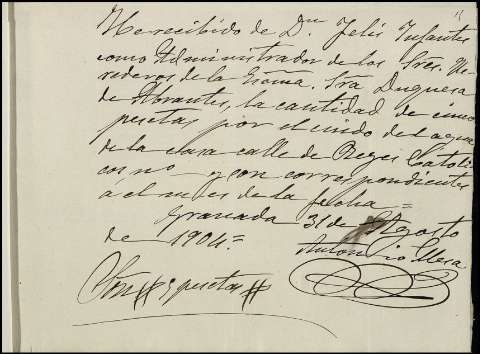 He recibido de Dn Felix Infantes
como Administrador de los Sres. He-
rederos de la Exma. Sra Duquesa
de Abrantes, la cantidad de cinco
pesetas por el cuido del agua
de la casa calle de Reyes Catoli
cos nº y son correspondientes
á el mes de la fecha=
Granada 31 de Agosto
de 1904=
Antonio Mesa
Son # 5 pesetas #